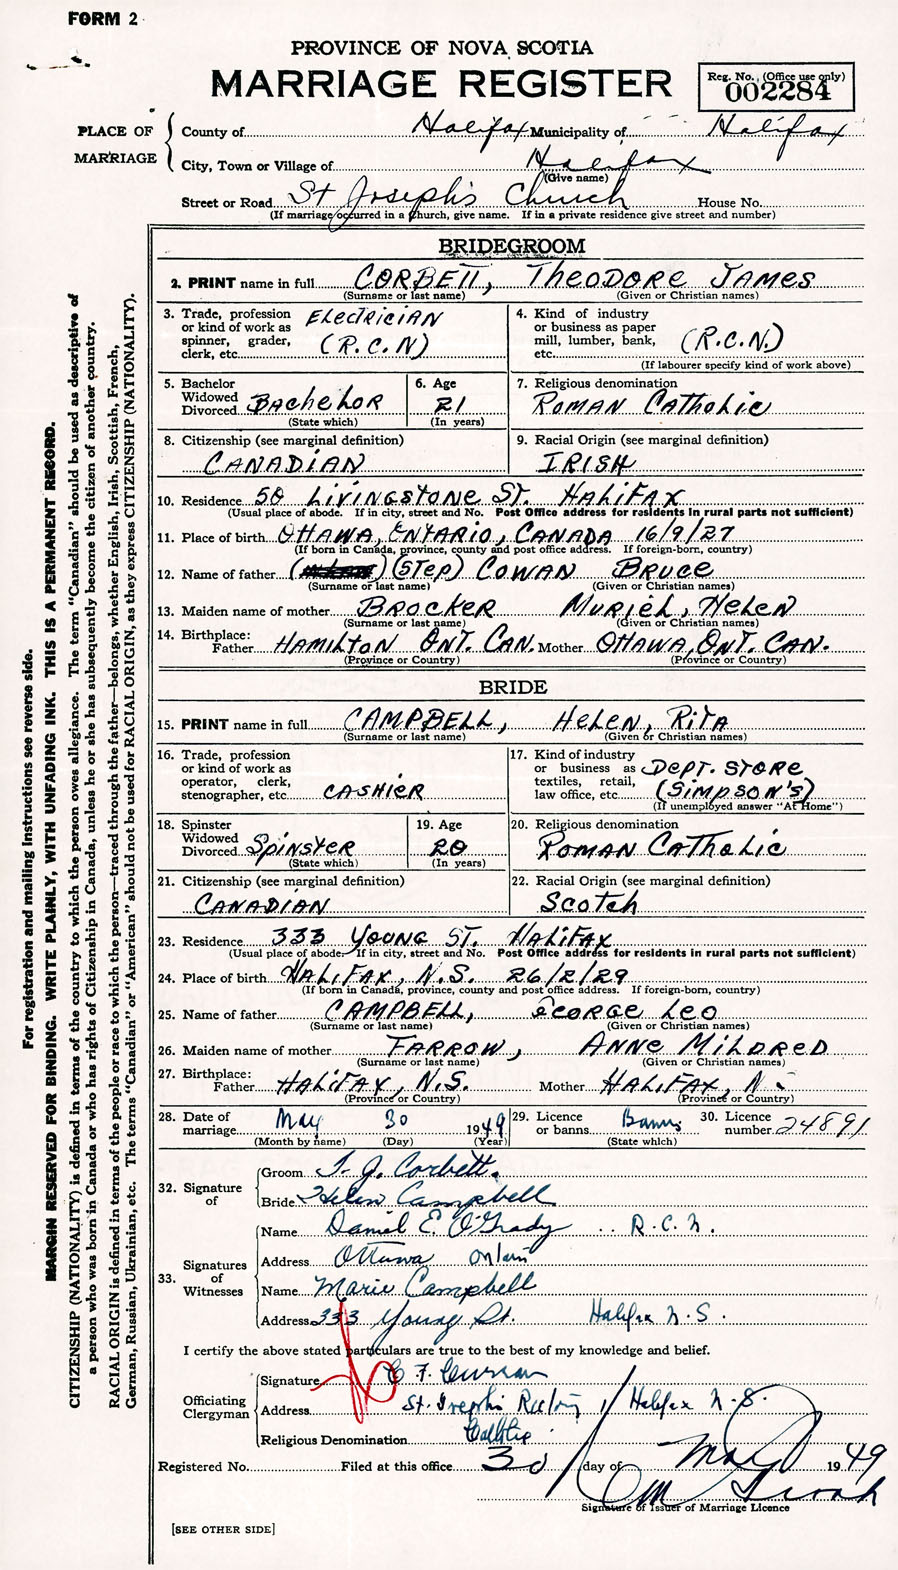 FORM 2
PROVINCE OF NOVA SCOTIA
MARRIAGE REGISTER
Reg. No. (Office use only)
002284
PLACE OF MARRIAGE
County of Halifax Municipality of Halifax
City, Town or Village of Halifax
(Give name)
Street or Road St Joseph's Church House No.
(If marriage occurred in a church, give name. If in a private residence give street and number)
BRIDEGROOM
2. PRINT name in full CORBETT, THEODORE JAMES
(Surname or last name) (Given or Christian names)
3. Trade, profession or kind of work as spinner, grader, clerk, etc. ELECTRICIAN (R.C.N)
4. Kind of industry or business as paper mill, lumber, bank, etc. (R.C.N.)
(If labourer specify kind of work above)
5. Bachelor Widowed Divorced BACHELOR
(State which)
6. Age 21
(In years)
7. Religious denomination ROMAN CATHOLIC
8. Citizenship (see marginal definition) CANADIAN
9. Racial Origin (see marginal definition) IRISH
10. Residence 50 LIVINGSTONE ST. HALIFAX
(Usual place of abode. If in city, street and No. Post Office address for residents in rural parts not sufficient)
11. Place of birth OTTAWA, ONTARIO, CANADA 16/9/27
(If born in Canada, province, county and post office address. If foreign-born, country)
12. Name of father (STEP) COWAN BRUCE
(Surname or last name) (Given or Christian names)
13. Maiden name of mother BROCKER MURIEL, HELEN
(Surname or last name) (Given or Christian names)
14. Birthplace: Father HAMILTON ONT. CAN. Mother OTTAWA, ONT. CAN.
(Province or Country) (Province or Country)
BRIDE
15. PRINT name in full CAMPBELL, HELEN, RITA
(Surname or last name) (Given or Christian names)
16. Trade, profession or kind of work as operator, clerk, stenographer, etc. CASHIER
17. Kind of industry or business as textiles, retail, law office, etc. DEPT. STORE (SIMPSON'S)
(If unemployed answer "At Home")
18. Spinster Widowed Divorced SPINSTER
(State which)
19. Age 20
(In years)
20. Religious denomination ROMAN CATHOLIC
21. Citizenship (see marginal definition) CANADIAN
22. Racial Origin (see marginal definition) SCOTCH
23. Residence 333 YOUNG ST. HALIFAX
(Usual place of abode. If in city, street and No. Post Office address for residents in rural parts not sufficient)
24. Place of birth HALIFAX, N.S. 26/2/29
(If born in Canada, province, county and post office address. If foreign-born, country)
25. Name of father CAMPBELL, GEORGE LEO
(Surname or last name) (Given or Christian names)
26. Maiden name of mother FARROW, ANNE MILDRED
(Surname or last name) (Given or Christian names)
27. Birthplace: Father HALIFAX, N.S. Mother HALIFAX, N
(Province or Country) (Province or Country)
28. Date of marriage May 30 1949
(Month by name) (Day) (Year)
29. Licence or banns Banns
(State which)
30. Licence number 24891
32. Signature of
Groom T. J. Corbett.
Bride Helen Campbell
33. Signatures of Witnesses
Name Daniel E. O'Grady R.C.N.
Address Ottawa Ontario
Name Marie Campbell
Address 333 Young St. Halifax N.S.
I certify the above stated particulars are true to the best of my knowledge and belief.
Officiating Clergyman
Signature C F Curran
Address St. Joseph's Halifax N.S.
Religious Denomination
Registered No. Filed at this office 30 day of May 1949
Signature of Issuer of Marriage Licence
[SEE OTHER SIDE]
For registration and mailing instructions see reverse side.
MARGIN RESERVED FOR BINDING. WRITE PLAINLY, WITH UNFADING INK. THIS IS A PERMANENT RECORD.
CITIZENSHIP (NATIONALITY) is defined in terms of the country to which the person owes allegiance. The term "Canadian" should be used as descriptive of
a person who was born in Canada or who has rights of Citizenship in Canada, unless he or she has subsequently become the citizen of another country.
RACIAL ORIGIN is defined in terms of the people or race to which the person—traced through the father—belongs, whether English, Irish, Scottish, French,
German, Russian, Ukrainian, etc. The terms "Canadian" or "American" should not be used for RACIAL ORIGIN, as they express CITIZENSHIP (NATIONALITY).